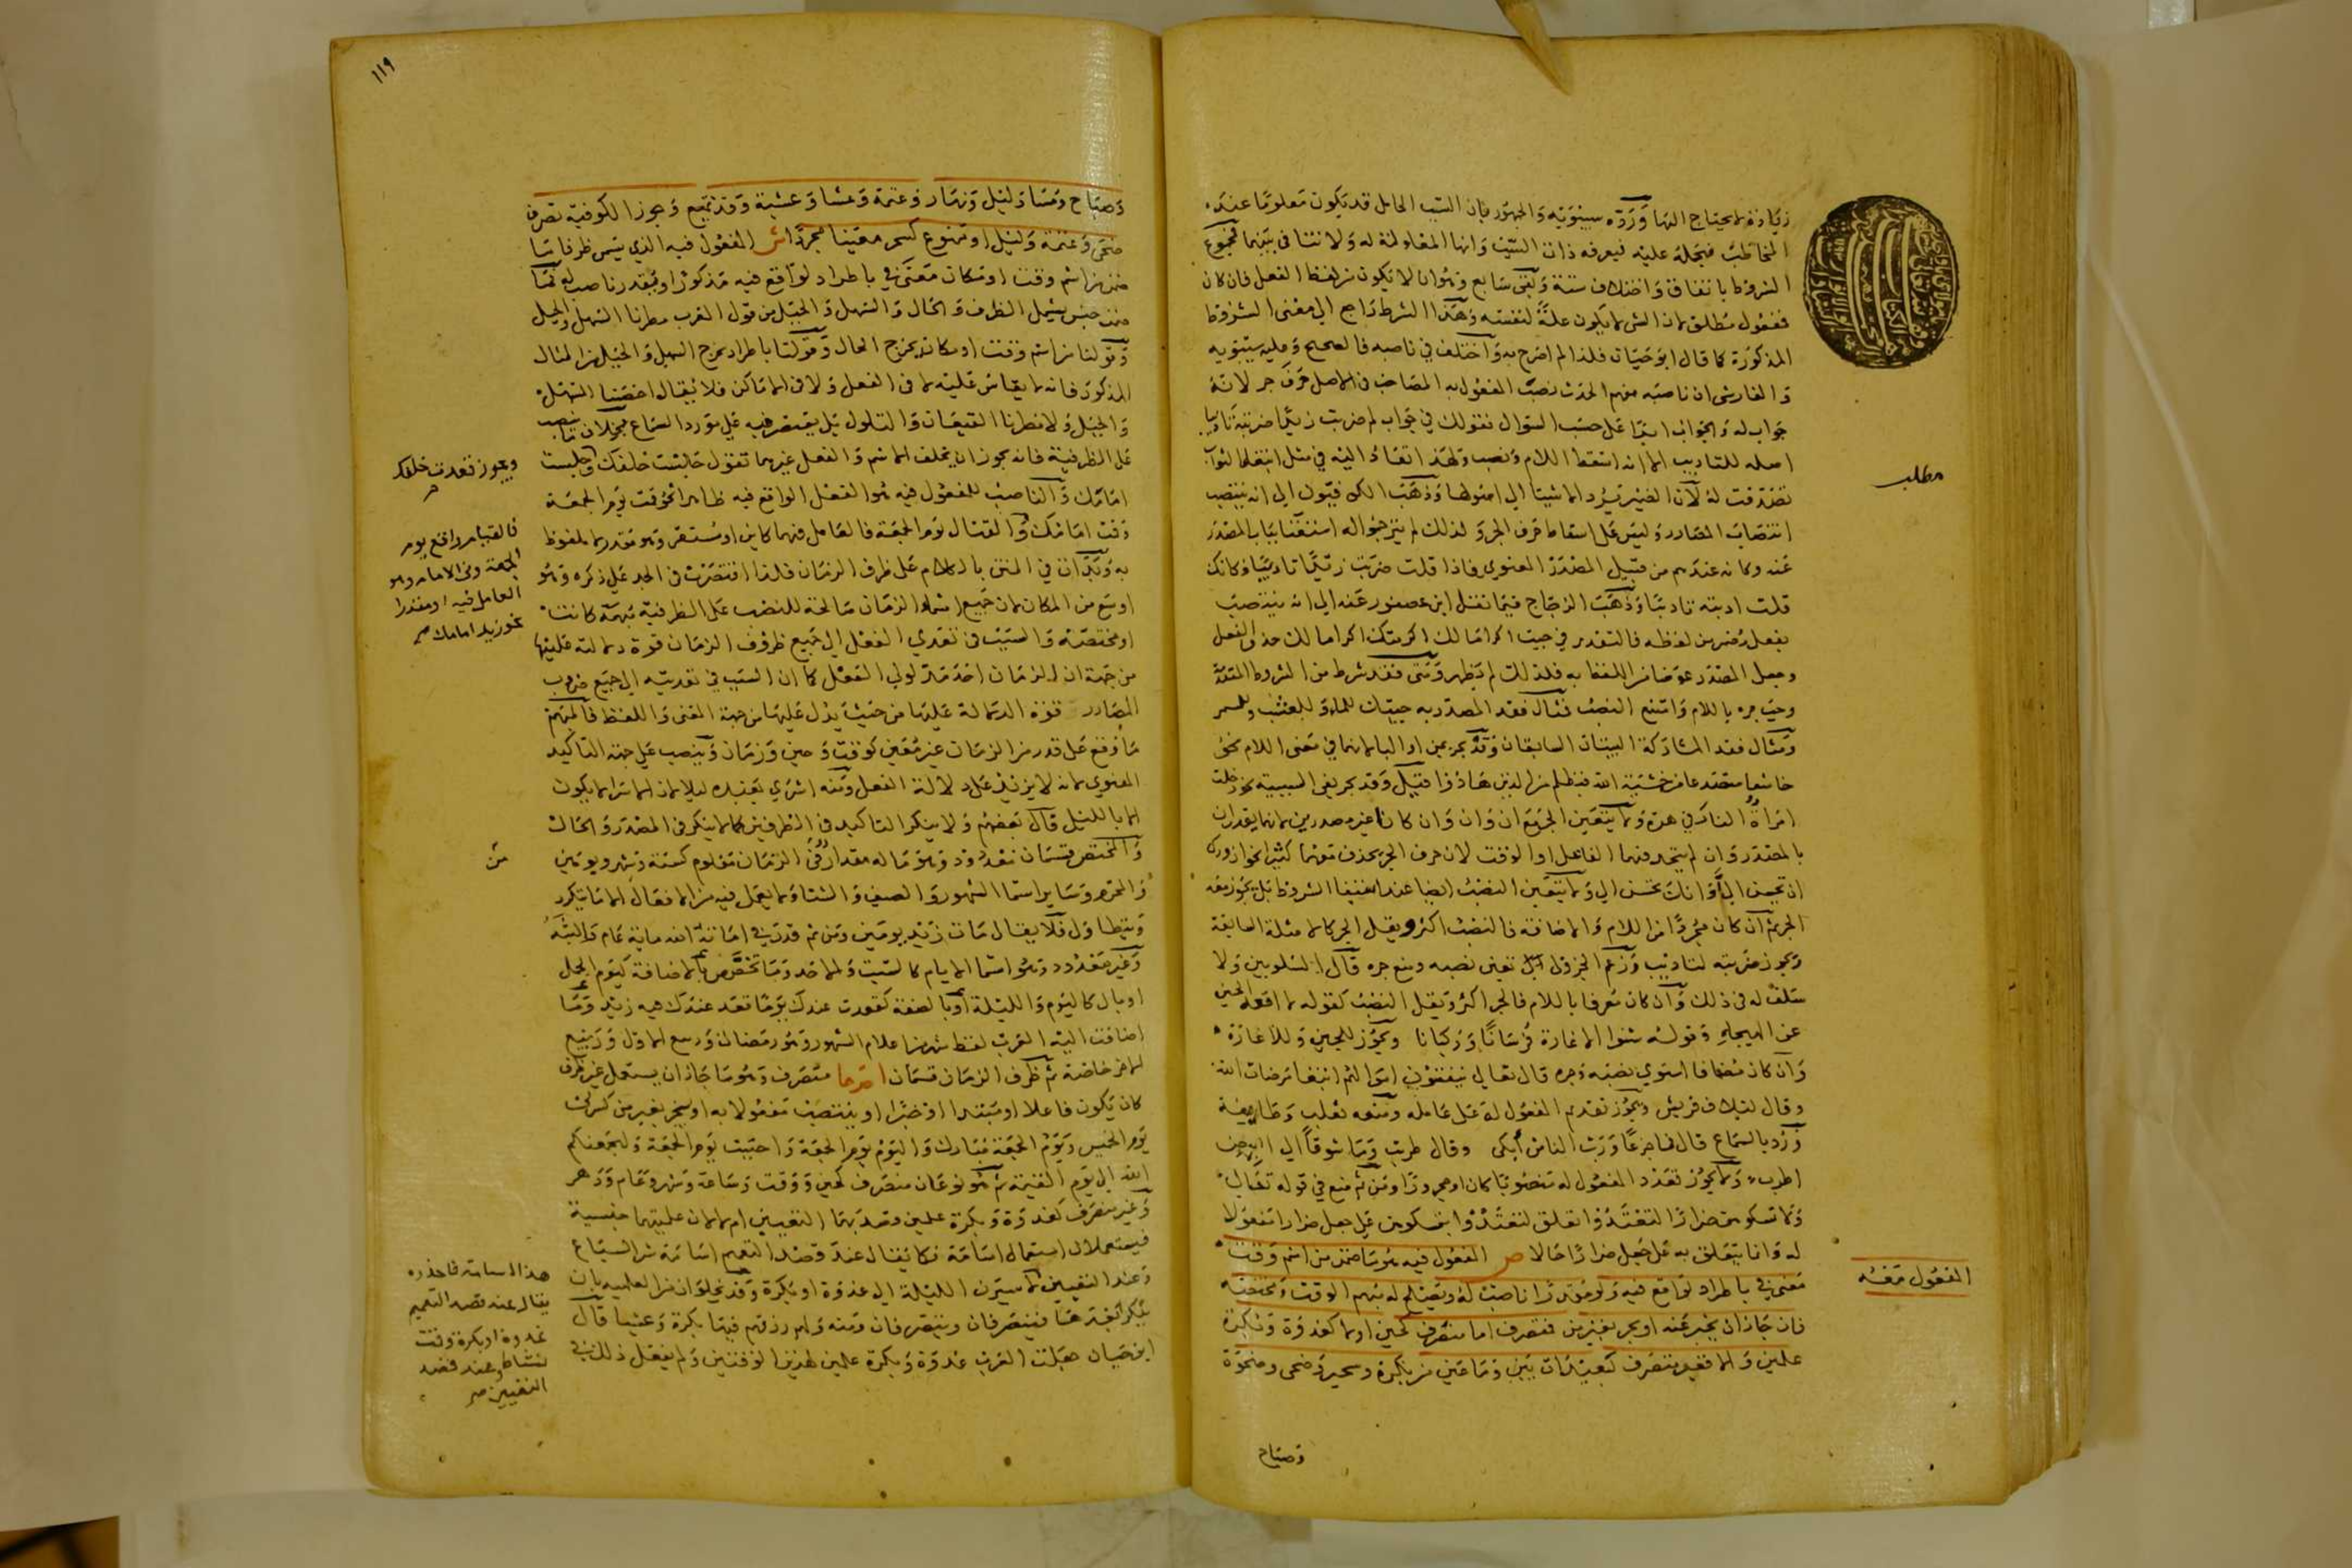 زيادة لا يحتاج اليها ورده سيبويه والجمهور بان السبب الحامل قد يكون معلوما عند
المخاطب فيحله عليه فيعرفه ذات السبب وانها المعاد له ولا تنافى بينهما فمجموع
الشروط باتفاق واختلاف ستة وبقى سابع وهو ان لا يكون من لفظ الفعل فان كان
فمفعول مطلق لان الشى لا يكون علة لنفسه وهذا الشرط راجع الى معنى الشروط
المذكورة كما قال ابو حيان فلذا لم اصرح به واختلف في ناصبه فالصحيح وعليه سيبويه
والفارسى ان ناصبه مفهم الحدث نصب المفعول به المصاحب فى الاصل حرف جر لانه
جواب له والجواب ابدا على حسب السوال فقولك في جواب لم ضربت زيدا ضربته تاديبا
اصله للتاديب الا انه اسقط اللام ونصب ولهذا تعاد اليه في مثل ابتغا الثواب
تصدقت له لان الضمير يرد الاشيا الى اصولها وذهب الكوفيون الى انه ينتصب
انتصاب المصادر وليس على اسقاط حرف الجر ولذلك لم يترجموا له استغنا بباب المصدر
عنه وكانه عندهم من قبيل المصدر المعنوي فاذا قلت ضربت زيدا تاديبا فكانك
قلت ادبته تاديبا وذهب الزجاج فيما نقل ابن عصفور عنه الى انه ينتصب
بفعل مضمر من لفظه فالتقدير في جيت اكراما لك اكرمتك اكراما لك حذف الفعل
وجعل المصدر عوضا من اللفظ به فلذلك لم يظهر ومتى فقد شرط من الشروط المتقدمة
وجب جره باللام وامتنع النصب مثال فقد المصدرية جيتك للماء وللعشب وللسمر
ومثال فقد المشاركة البيتان السابقان وقد يجر بمن او البا لانهما في معنى اللام نحو
خاشعا متصدعا من خشية الله فبظلم من الذين هادوا قيل وقد يجر بفى السببية نحو دخلت
امراة النار في هرة ولا يتعين الجر مع ان وان وان كانا غير مصدرين لانهما يقدران
بالمصدر وان لم يتحد فيهما الفاعل او الوقت لان حرف الجر يحذف معهما كثيرا نحو ازورك
ان تحسن الى او انك تحسن الى ولا يتعين النصب ايضا عند استيفا الشروط بل يجوز معه
الجر ثم ان كان مجردا من اللام والاضافة فالنصب اكثر ويقل الجر كالامثلة السابقة
ويجوز ضربته لتاديب وزعم الجزولى تعين نصبه ومنع جره قال الشلوبين ولا
سلف له فى ذلك وان كان معرفا باللام فالجر اكثر ويقل النصب كقوله لا اقعد الجبن
عن الهيجاء وقوله شنوا الاغارة فرسانا وركبانا ويجوز للجبن وللاغارة
وان كان مضافا استوى نصبه وجره قال تعالى ينفقون اموالهم ابتغا مرضات الله
وقال لئلاف قريش ويجوز تقديم المفعول له على عامله ومنعه ثعلب وطايفة
ورد بالسماع قال فما جزعا ورب الناس ابكى وقال طربت وما شوقا الى البيض
اطرب ولا يجوز تعدد المفعول له منصوبا كان او مجرورا ومن ثم منع في قوله تعالى
ولا تمسكوهن ضرارا لتعتدوا تعلق لتعتدوا بتمسكوهن على جعل ضرارا مفعولا
له وانما يتعلق به على جعل ضرارا حالا ص المفعول فيه هو ما ضمن من اسم وقت
معنى في باطراد لواقع فيه ولو مقدرا ناصب له ويصلح له مبهم الوقت ومختصه
فان جاز ان يخبر عنه او يجر بغير من فمتصرف اما منصرف كحين او لا كغدوة وبكرة
علمين والا فغير متصرف كبعيدات بين وما عين من بكرة وسحير وضحى وضحوة
وصباح
مطلب
المفعول معه
١١٩
وصباح ومسا وليل ونهار وعتمة وعشا وعشية وقد تمنع وجوزا لكوفية تصرف
ضحى وعتمة وليل او ممنوع كسحر معينا مجردا ش المفعول فيه الذي يسمى ظرفا ما
ضمن من اسم وقت او مكان معنى في باطراد لواقع فيه مذكور او مقدر ناصب له فما
ضمن جنس يشمل الظرف والحال والسهل والجبل من قول العرب مطرنا السهل والجبل
وقولنا من اسم وقت او مكان يخرج الحال وقولنا باطراد يخرج السهل والجبل من المثال
المذكور فانه لا يقاس عليه لا فى الفعل ولا فى الاماكن فلا يقال اخصبنا السهل
والجبل ولا مطرنا القيعان والتلول بل يقتصر فيه على مورد السماع بخلاف ما ينصب
على الظرفية فانه يجوز ان يخلف الاسم والفعل غيرهما تقول جلست خلفك وجلست
امامك والناصب للمفعول فيه هو الفعل الواقع فيه ظاهرا نحو قمت يوم الجمعة
وقمت امامك والقتال يوم الجمعة فالعامل فيهما كاين او مستقر وهو مقدر لا ملفوظ
به وبدات في المتن بالكلام على ظرف الزمان فلذا اقتصرت فى الحد على ذكره وهو
اوسع من المكان لان جميع اسماء الزمان صالحة للنصب على الظرفية مبهمة كانت
او مختصة والسبب فى تعدي الفعل الى جميع ظروف الزمان قوة دلالته عليها
من جهة ان الزمان احد مدلولي الفعل كما ان السبب في تعديه الى جميع ضروب
المصادر قوة الدلالة عليها من حيث يدل عليها من جهة المعنى واللفظ فالمبهم
ما وقع على قدر من الزمان غير معين كوقت وحين وزمان وينصب على جهة التاكيد
المعنوي لانه لا يزيد على دلالة الفعل ومنه اسرى بعبده ليلا لان الاسرا لا يكون
الا بالليل قال بعضهم ولا ينكر التاكيد فى الظرفين كما لا ينكر فى المصدر والحال
والمختص قسمان معدود وهو ما له مقدار من الزمان معلوم كسنة وشهر ويومين
والمحرم وساير اسما الشهور والصيف والشتا ولا يعمل فيه من الافعال الا ما يتكرر
ويتطاول فلا يقال مات زيد يومين ومن ثم قدر في اماته الله ماية عام والبثه
وغير معدود وهو اسما الايام كالسبت والاحد وما تخصص بالاضافة كيوم الجمل
او بال كاليوم والليلة او بالصفة كقعدت عندك يوما قعد عندك فيه زيد وما
اضافت اليه العرب لفظ شهر من اعلام الشهور وهو رمضان وربيع الاول وربيع
الاخر خاصة ثم ظرف الزمان قسمان احدهما متصرف وهو ما جاز ان يستعمل غير ظرف
كان يكون فاعلا او مبتدا او خبرا او ينتصب مفعولا به او يجر بغير من كسرنى
يوم الخميس ويوم الجمعة مبارك واليوم يوم الجمعة واحببت يوم الجمعة وليجمعنكم
الله الى يوم القيمة ثم هو نوعان منصرف كحين ووقت وساعة وشهر وعام ودهر
وغير منصرف كغدوة وبكرة علمين قصد بهما التعيين ام لا لان علميتهما جنسية
فيستعملان استعمال اسامة فكما يقال عند قصد التعميم اسامة شر السباع
وعند التعيين لاسيرن الليلة الى غدوة او بكرة وقد يخلوان من العلمية بان
ينكرا بعدها فينصرفان ويتصرفان ومنه ولهم رزقهم فيها بكرة وعشيا قال
ابو حيان جعلت العرب غدوة وبكرة علمين لهذين الوقتين ولم يفعل ذلك في
ويجوز قعدت خلفك
فالقيام واقع يوم
الجمعة وفى الامام وهو
العامل فيه او مقدرا
نحو زيد امامك صح
من
هذا اسامة فاحذره
يقال عند قصد التعميم
غدوة او بكرة وقت
نشاط وعند قصد
التعيين صح